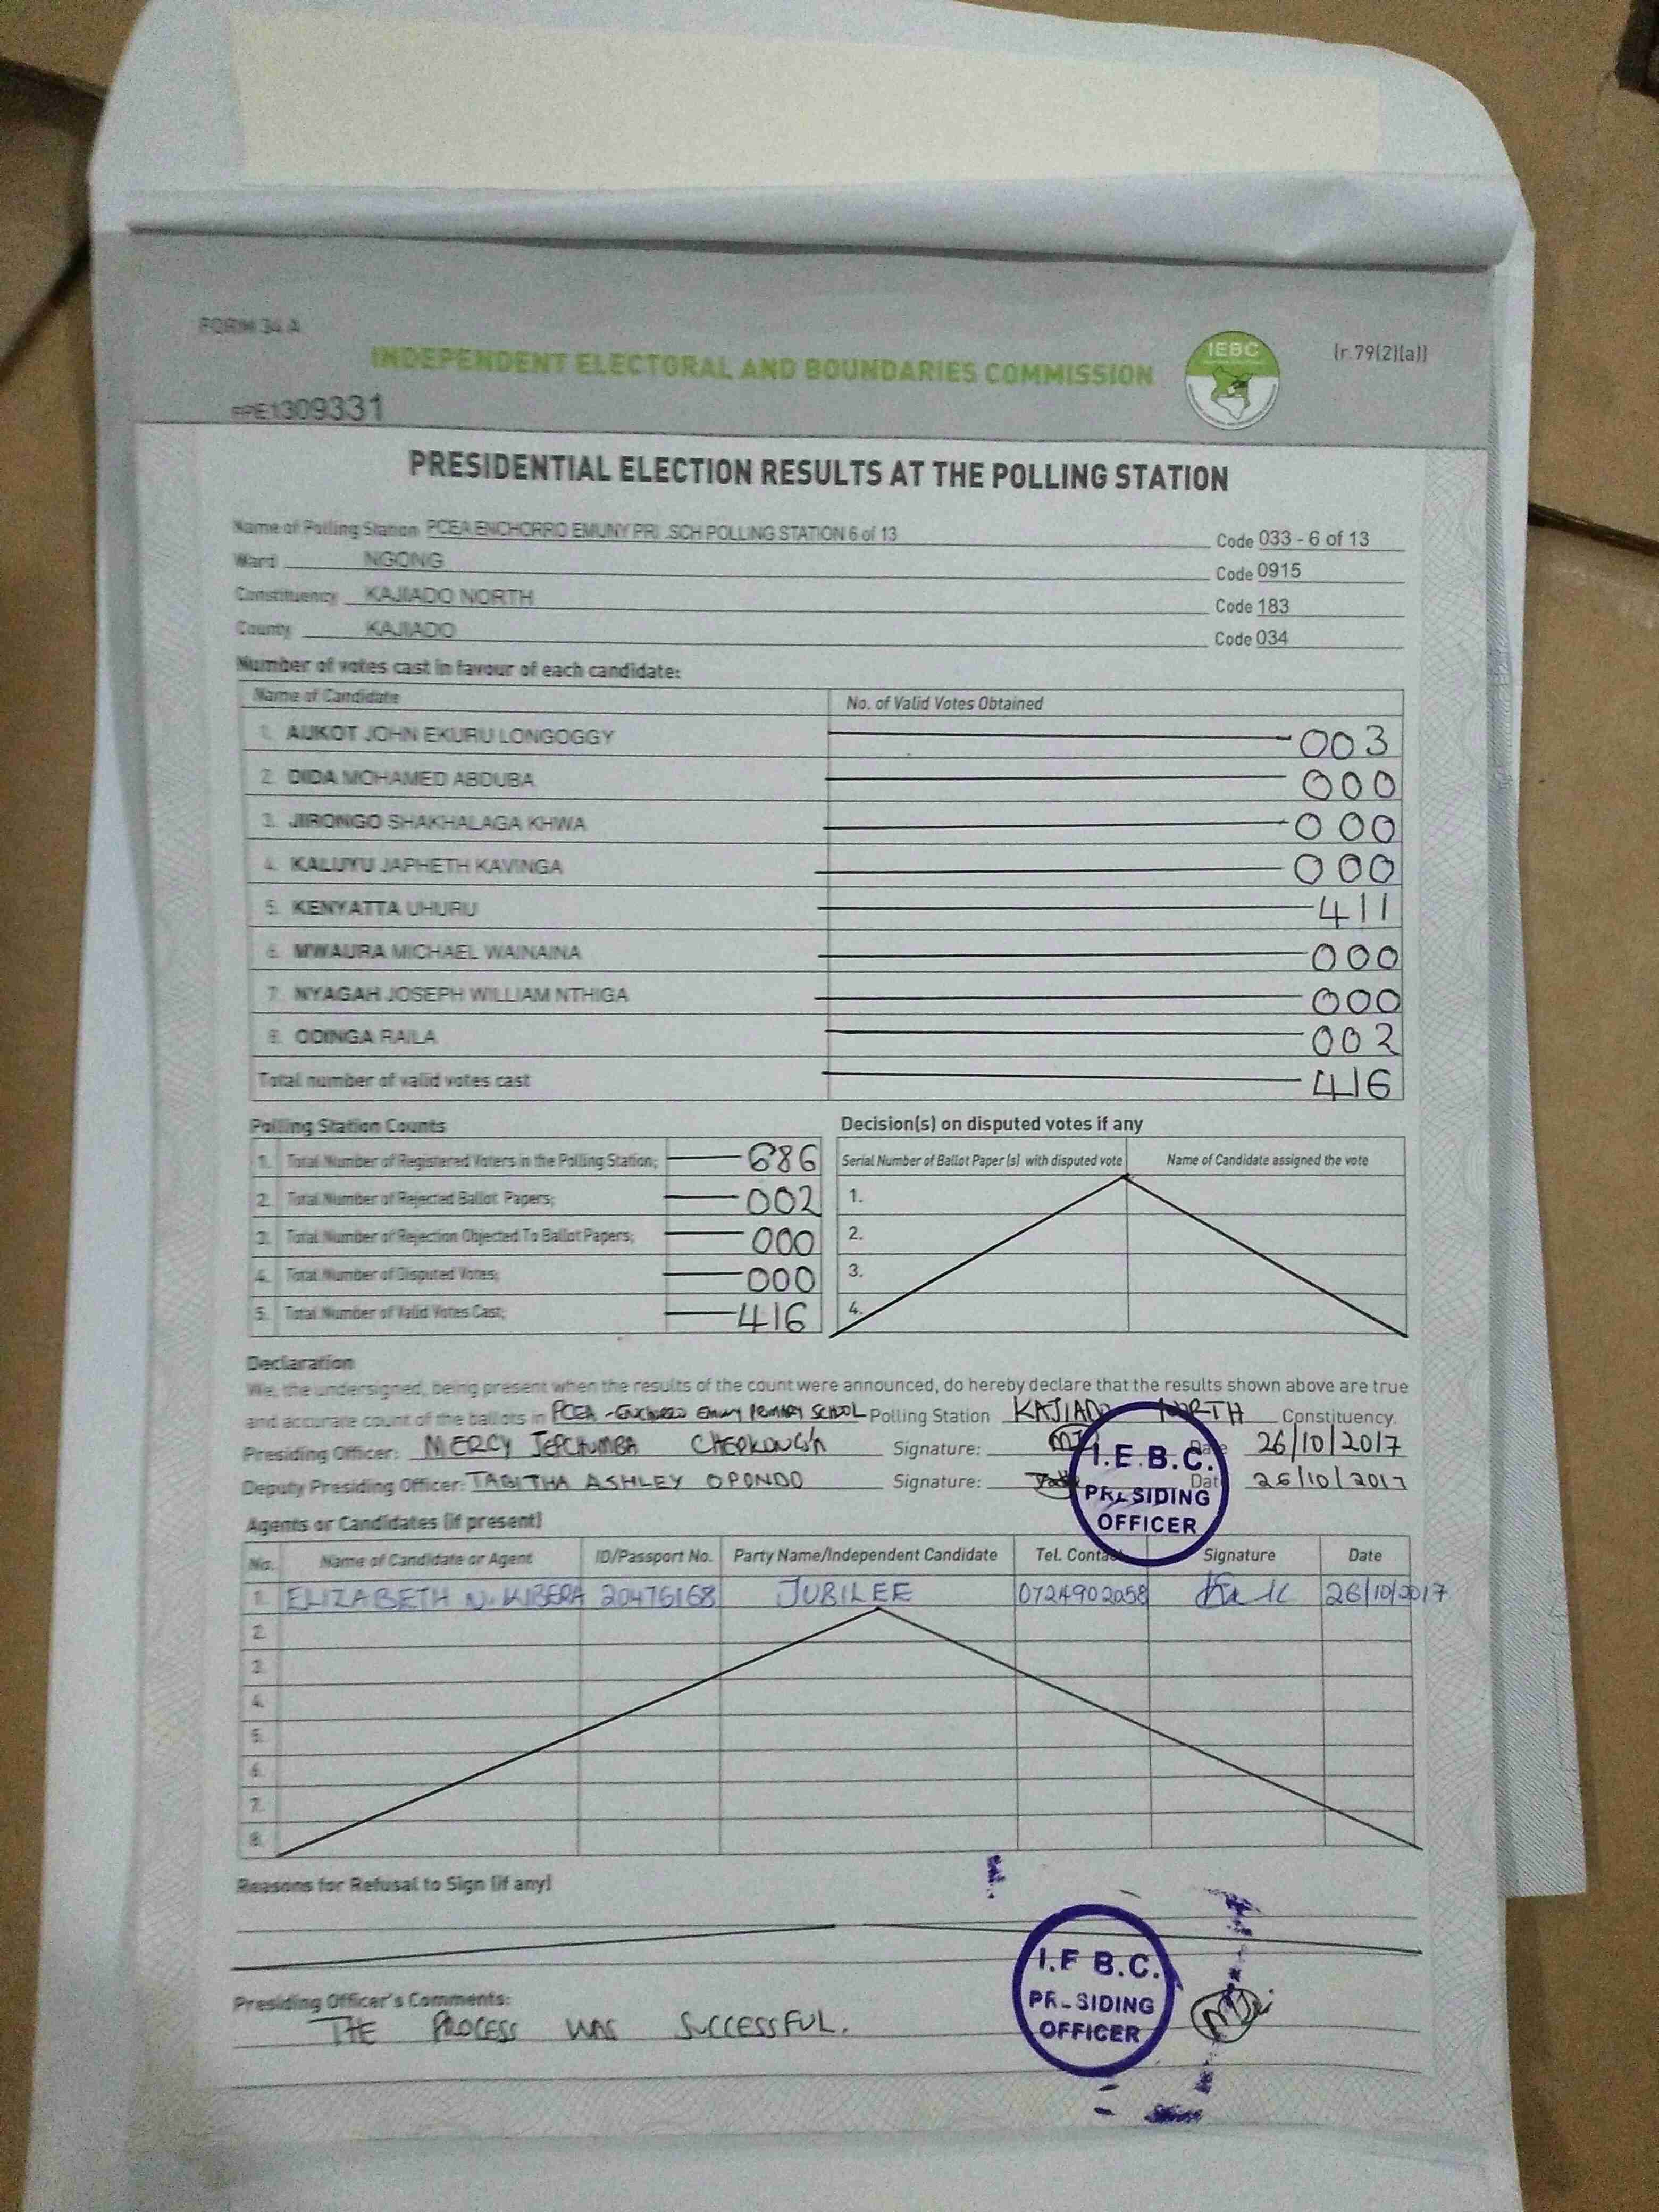 FORM 34 A
(r.79(2)(a))
INDEPENDENT ELECTORAL AND BOUNDARIES COMMISSION
IEBC
PRE1309331
PRESIDENTIAL ELECTION RESULTS AT THE POLLING STATION
Name of Polling Station PCEA ENCHORRO EMUNY PRI .SCH POLLING STATION 6 of 13 Code 033 - 6 of 13
Ward NGONG Code 0915
Constituency KAJIADO NORTH Code 183
County KAJIADO Code 034
Number of votes cast in favour of each candidate:
Name of Candidate No. of Valid Votes Obtained
1. AUKOT JOHN EKURU LONGOGGY 003
2. DIDA MOHAMED ABDUBA 000
3. JIRONGO SHAKHALAGA KHWA 000
4. KALUYU JAPHETH KAVINGA 000
5. KENYATTA UHURU 411
6. MWAURA MICHAEL WAINAINA 000
7. NYAGAH JOSEPH WILLIAM NTHIGA 000
8. ODINGA RAILA 002
Total number of valid votes cast 416
Polling Station Counts
1. Total Number of Registered Voters in the Polling Station; 686
2. Total Number of Rejected Ballot Papers; 002
3. Total Number of Rejection Objected To Ballot Papers; 000
4. Total Number of Disputed Votes; 000
5. Total Number of Valid Votes Cast; 416
Decision(s) on disputed votes if any
Serial Number of Ballot Paper (s) with disputed vote Name of Candidate assigned the vote
1.
2.
3.
4.
Declaration
We, the undersigned, being present when the results of the count were announced, do hereby declare that the results shown above are true
and accurate count of the ballots in PCEA - ENCHORRO EMUNY PRIMARY SCHOOL Polling Station KAJIADO NORTH Constituency.
Presiding Officer: MERCY JEPCHUMBA CHEPKONG'A Signature: Date 26/10/2017
Deputy Presiding Officer: TABITHA ASHLEY OPONDO Signature: Dat 26/10/2017
I.E.B.C.
PRESIDING
OFFICER
Agents or Candidates (if present)
No. Name of Candidate or Agent ID/Passport No. Party Name/Independent Candidate Tel. Contact Signature Date
1. ELIZABETH N. KIBERA 20476168 JUBILEE 0724902058 26/10/2017
2.
3.
4.
5.
6.
7.
8.
Reasons for Refusal to Sign (if any)
Presiding Officer's Comments:
THE PROCESS WAS SUCCESSFUL.
I.E B.C.
PRESIDING
OFFICER